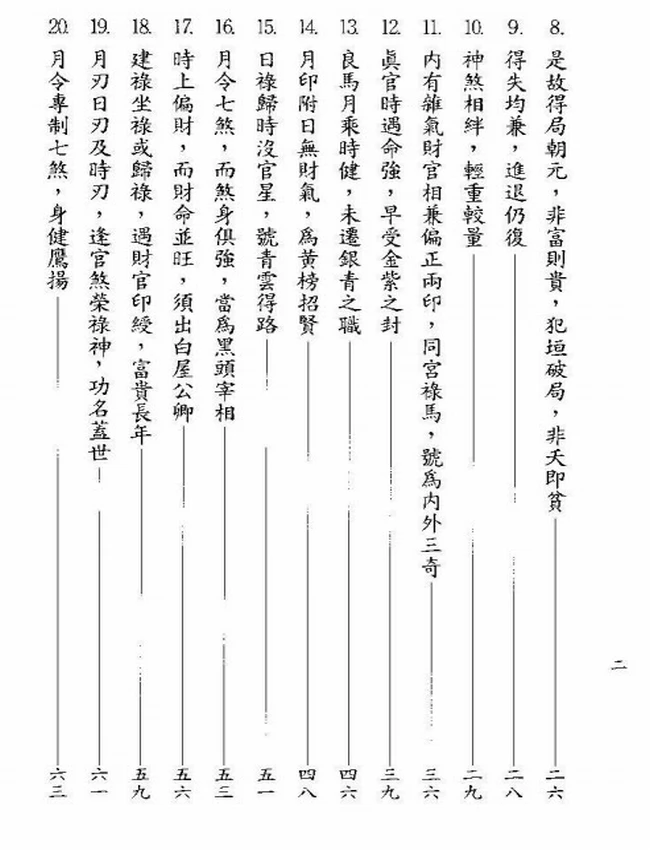 8. 是故得局朝元，非富則貴，犯垣破局，非夭即貧 二六
9. 得失均兼，進退仍復 二八
10. 神煞相絆，輕重較量 二九
11. 內有雜氣財官相兼偏正兩印，同宮祿馬，號為內外三奇 三六
12. 眞官時遇命強，早受金紫之封 三九
13. 良馬月乘時健，未遷銀青之職 四六
14. 月印附日無財氣，為黃榜招賢 四八
15. 日祿歸時沒官星，號青雲得路 五一
16. 月令七煞，而煞身俱強，當為黑頭宰相 五三
17. 時上偏財，而財命並旺，須出白屋公卿 五六
18. 建祿坐祿或歸祿，遇財官印綬，富貴長年 五九
19. 月刃日刃及時刃，逢官煞榮祿神，功名蓋世 六一
20. 月令專制七煞，身健鷹揚 六三
二